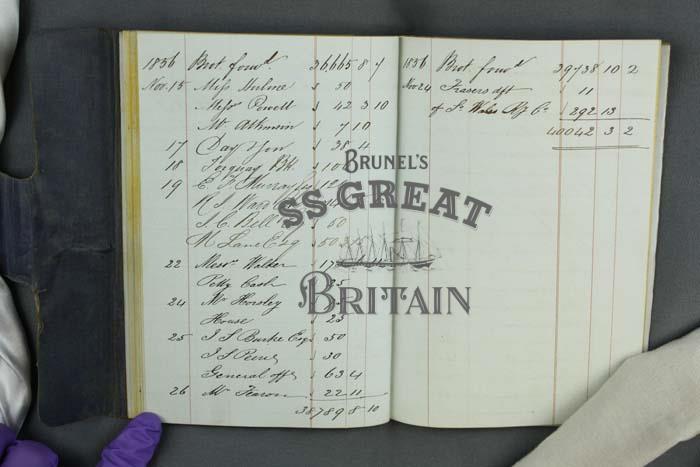 1856 Brot forwd 36,665 8 7
Nov. 15 Miss Hulme 50
Messrs Powell 42 3 10
Mr 7 10
17 Day & Son 38 11
18 Torquay
19 C. F. Murray
N S
J. C. Bell 50
M Lane Esq
22 Messrs Walker 17
Petty Cash 25
24 Mr Horsley
House 25
25 J S Burke Esq 50
J S 30
General offs 63 4
26 Mr Fearon 22 11
38789 8 10
1856 Brot forwd 39738 10 2
Nov 24 Frasers dft 11
of So Wales Rlf Co 292 13
40042 3 2
BRUNEL'S
SS GREAT
BRITAIN